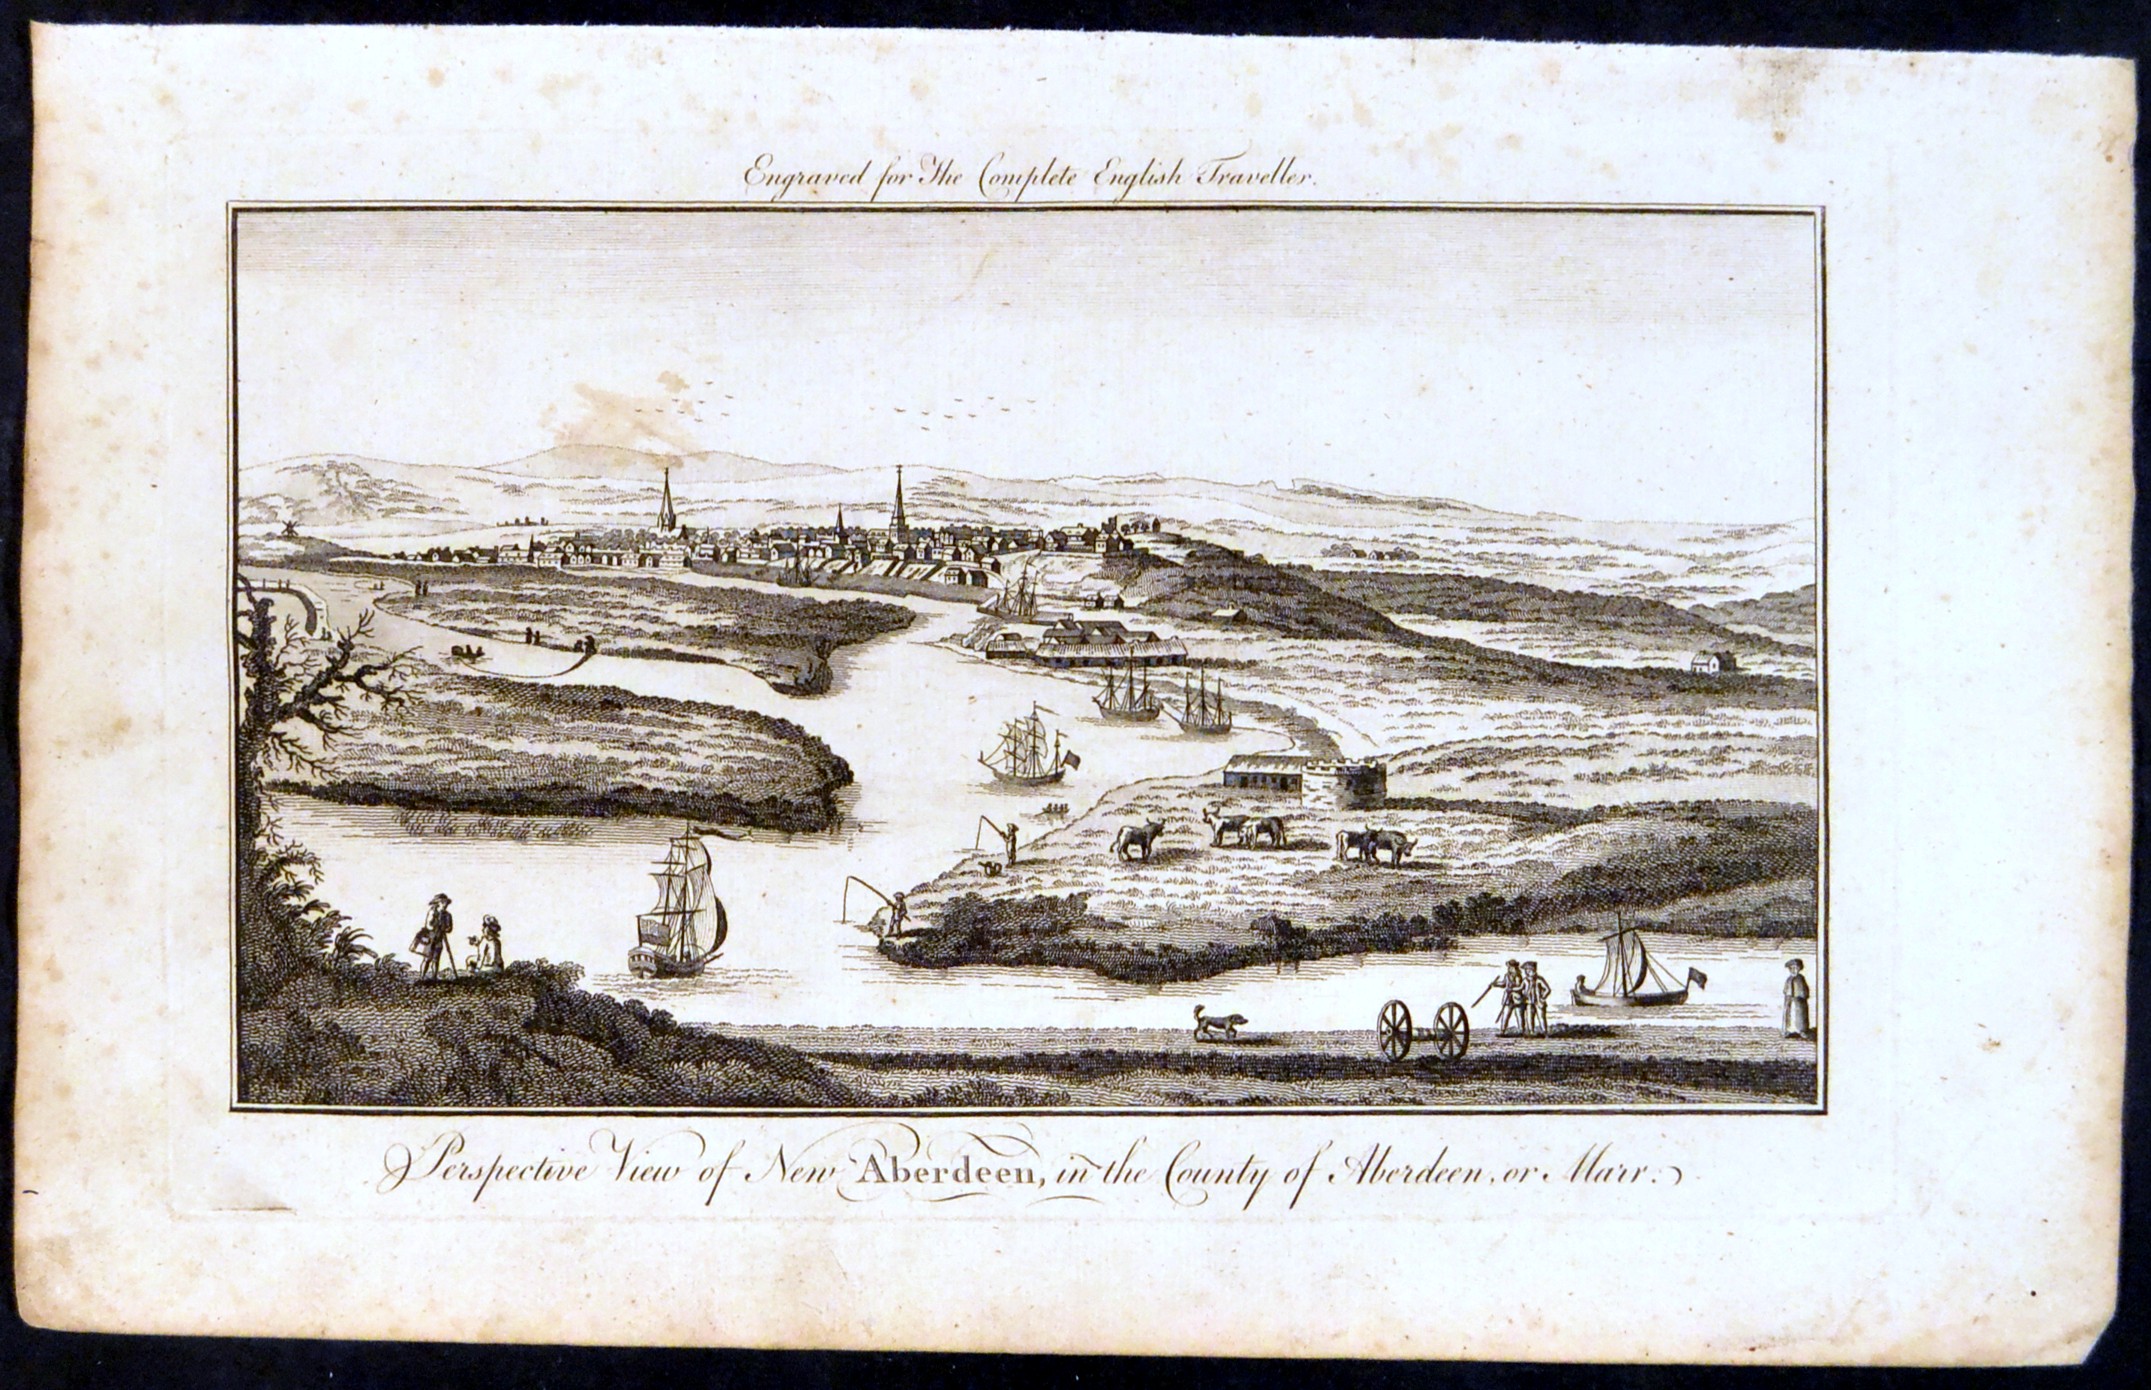 Engraved for The Complete English Traveller.
Perspective View of New Aberdeen, in the County of Aberdeen, or Marr.